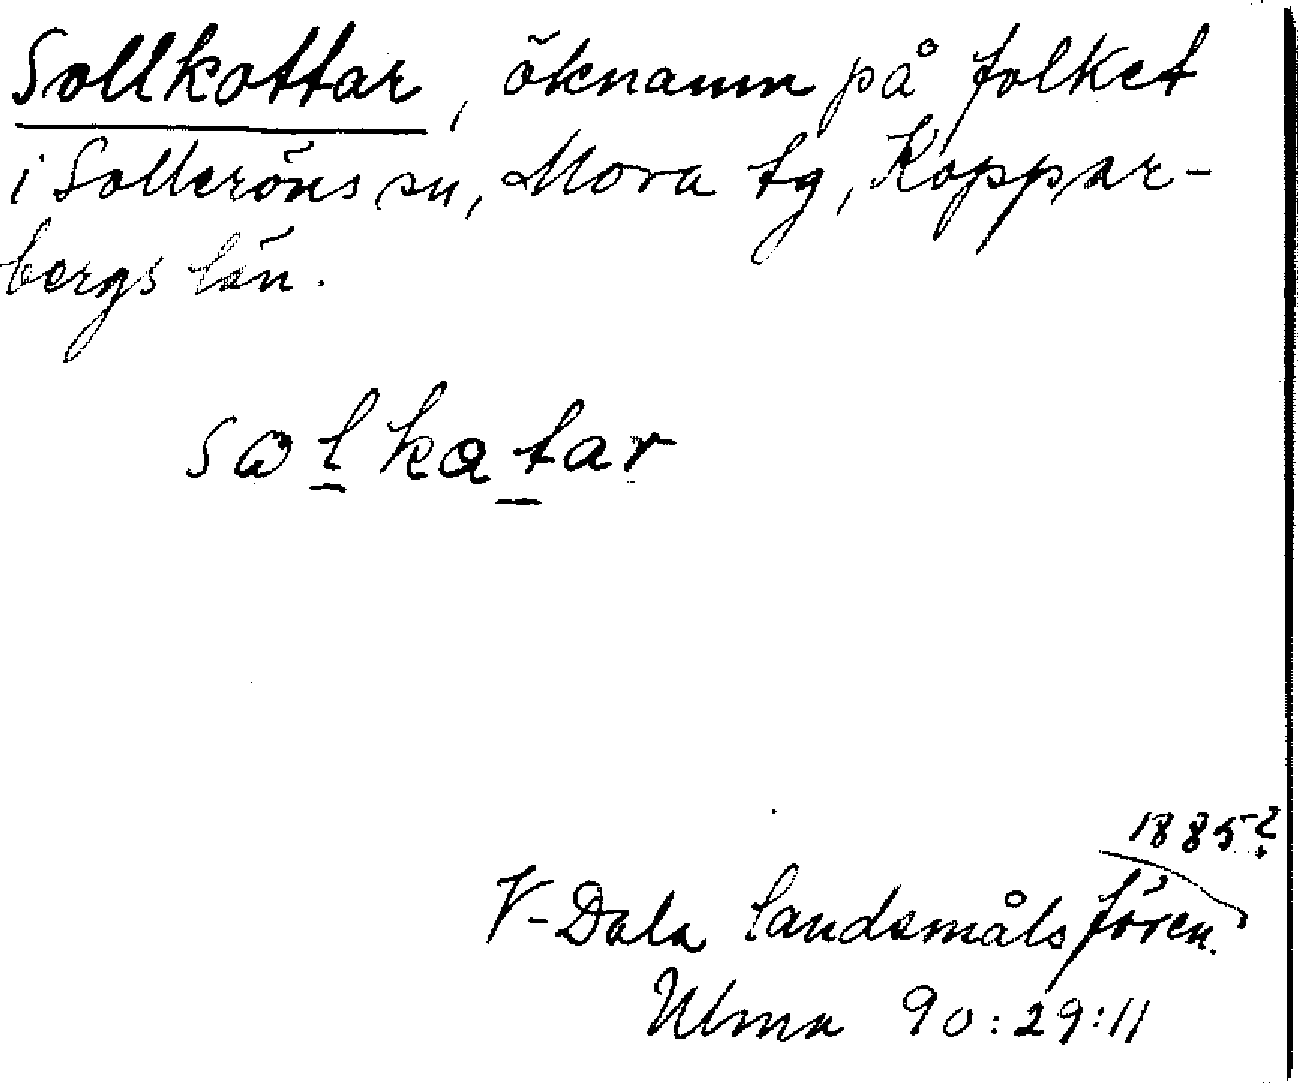 Sollkottar, öknamn på folket
i Solleröns sn, Mora tg, Koppar-
bergs län.
solkatar
1885?
V-Dala landsmålsfören.
Ulma 90:29:11